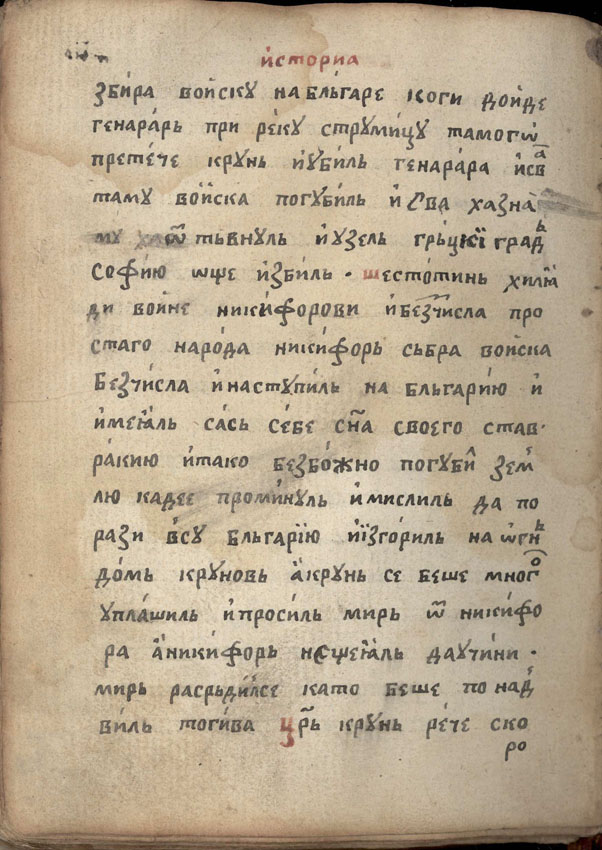 исторїа
збира войску на бльгаре коги дойде
генарарь при реку струмицу тамогѡ
претече крунь и убиль генарара и свᲂ
таму войска погубиль и сва хазна
му ѿ тьвнуль и узель грьцкїи градь
Софию ѡще избиль · шестотинь хилїа
ди войне никифорови и безчисла про
стаго народа никифорь сьбра войска
безчисла и наступиль на бльгарию и
имеꙗль сась себе сн҃а своего став·
ракию и тако безбожно погуби зем
лю кадее проминуль и мислиль да по
рази всу бльгарїю и їзгориль на ѡгнь
домь круновь а крунь се беше много
уплашиль и просиль мирь ѿ никифо
ра а никифорь не щеꙗль да учини ·
мирь расрьдилсе като беше по над
виль тогива цр҃ь крунь рече ско
ро